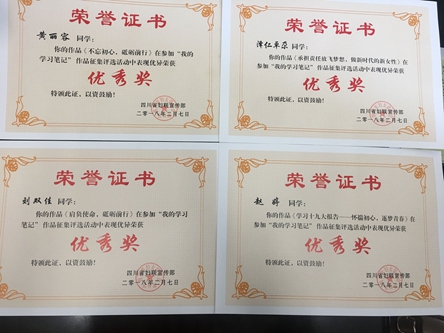 荣誉证书
黄丽容 同学：
你的作品《不忘初心，砥砺前行》在参加“我的
学习笔记”作品征集评选活动中表现优异荣获
优秀奖
特颁此证，以资鼓励！
四川省妇联宣传部
二零一八年二月七日
荣誉证书
泽仁卓朵 同学：
你的作品《承担责任放飞梦想，做新时代的新女性》在
参加“我的学习笔记”作品征集评选活动中表现优异荣获
优秀奖
特颁此证，以资鼓励！
四川省妇联宣传部
二零一八年二月七日
荣誉证书
刘双佳 同学：
你的作品《肩负使命，砥砺前行》在参加“我的学习
笔记”作品征集评选活动中表现优异荣获
优秀奖
特颁此证，以资鼓励！
四川省妇联宣传部
二零一八年二月七日
荣誉证书
赵 同学：
你的作品《学习十九大报告——怀揣初心，逐梦青春》在
参加“我的学习笔记”作品征集评选活动中表现优异荣获
优秀奖
特颁此证，以资鼓励！
四川省妇联宣传部
二零一八年二月七日